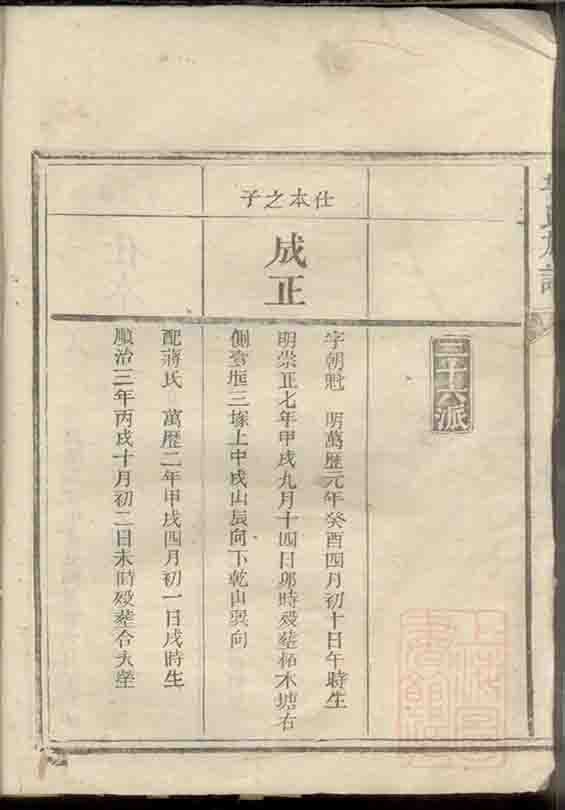 三十六派
仕本之子
成正
字朝魁 明萬歷元年癸酉四月初十日午時生
明崇正七年甲戌九月十四日卯時殁塟柘木塘右
側壹垣三塚上中戌山辰向下乾山巽向
配蔣氏 萬歷二年甲戌四月初一日戌時生
順治三年丙戌十月初二日未時殁塟合夫塋